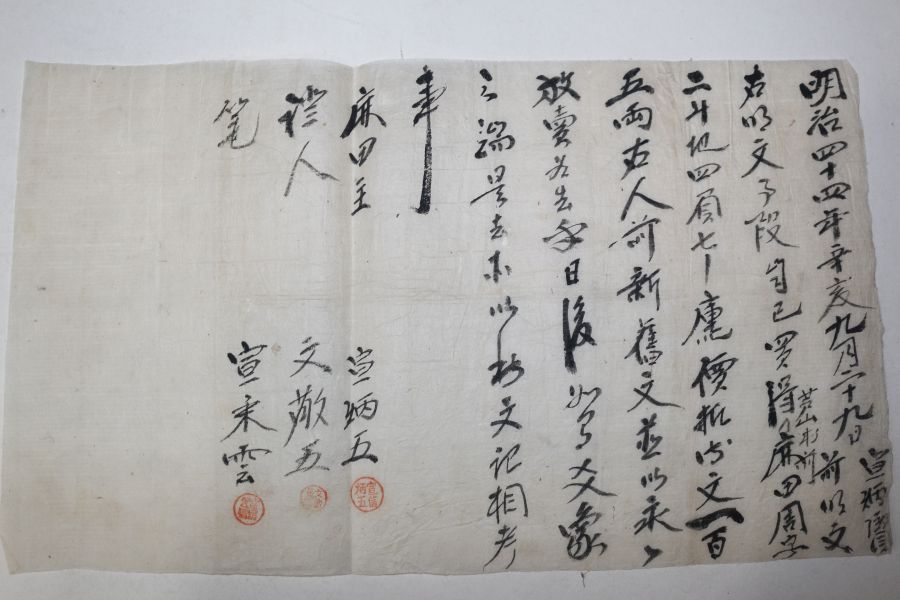 明治四十四年辛亥九月二十九日 宣炳 前明文
右明文事段自己買得 山 前 麻田周字
二斗地四負七卜庫價折錢文一百
五兩右人前新舊文並以永永
放賣爲去乎日後如有爻象
之端是去等以此文記相考
事
麻田主 宣炳五
證人 文敬五
筆 宣秉雲